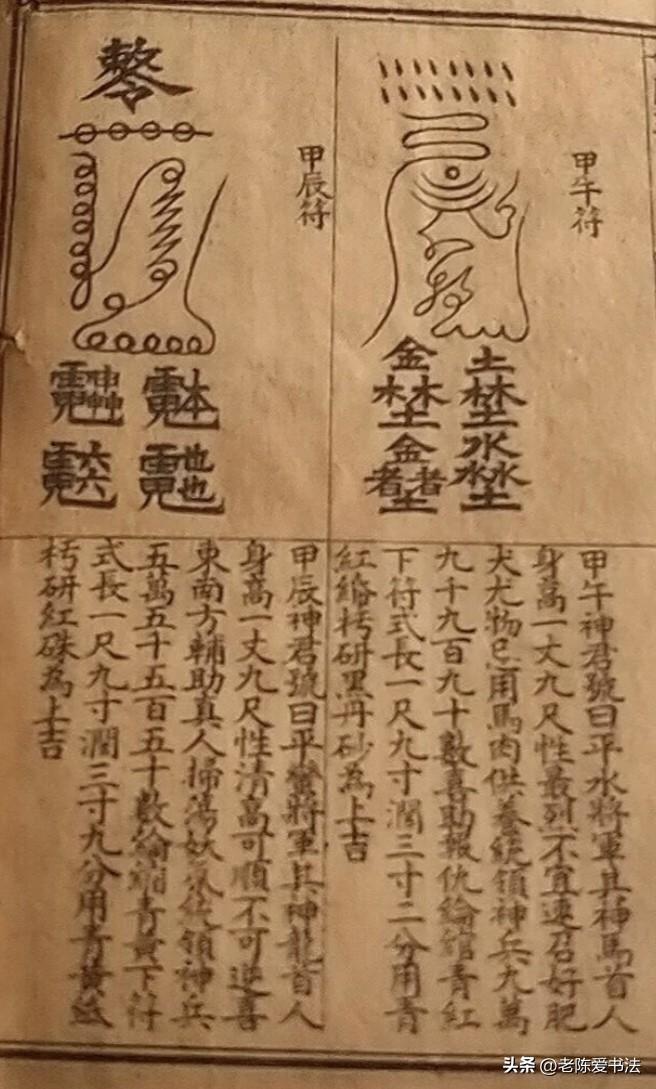 甲午符
金 土
甲午神君號曰平水將軍其神馬首人
身高一丈九尺性最烈不宜速召好肥
犬尤物忌用馬肉供養統領神兵九萬
九千九百九十數喜助報仇綸綰青紅
下符式長一尺九寸濶三寸二分用青
紅紙朽研黑丹砂為上吉
甲辰符
甲辰神君號曰平蠻將軍其神龍首人
身高一丈九尺性清高可順不可逆喜
東南方輔助真人掃蕩妖氛統領神兵
五萬五千五百五十數綸綰青黃下符
式長一尺九寸濶三寸九分用青黃紙
朽研紅硃為上吉
头条 @老陈爱书法